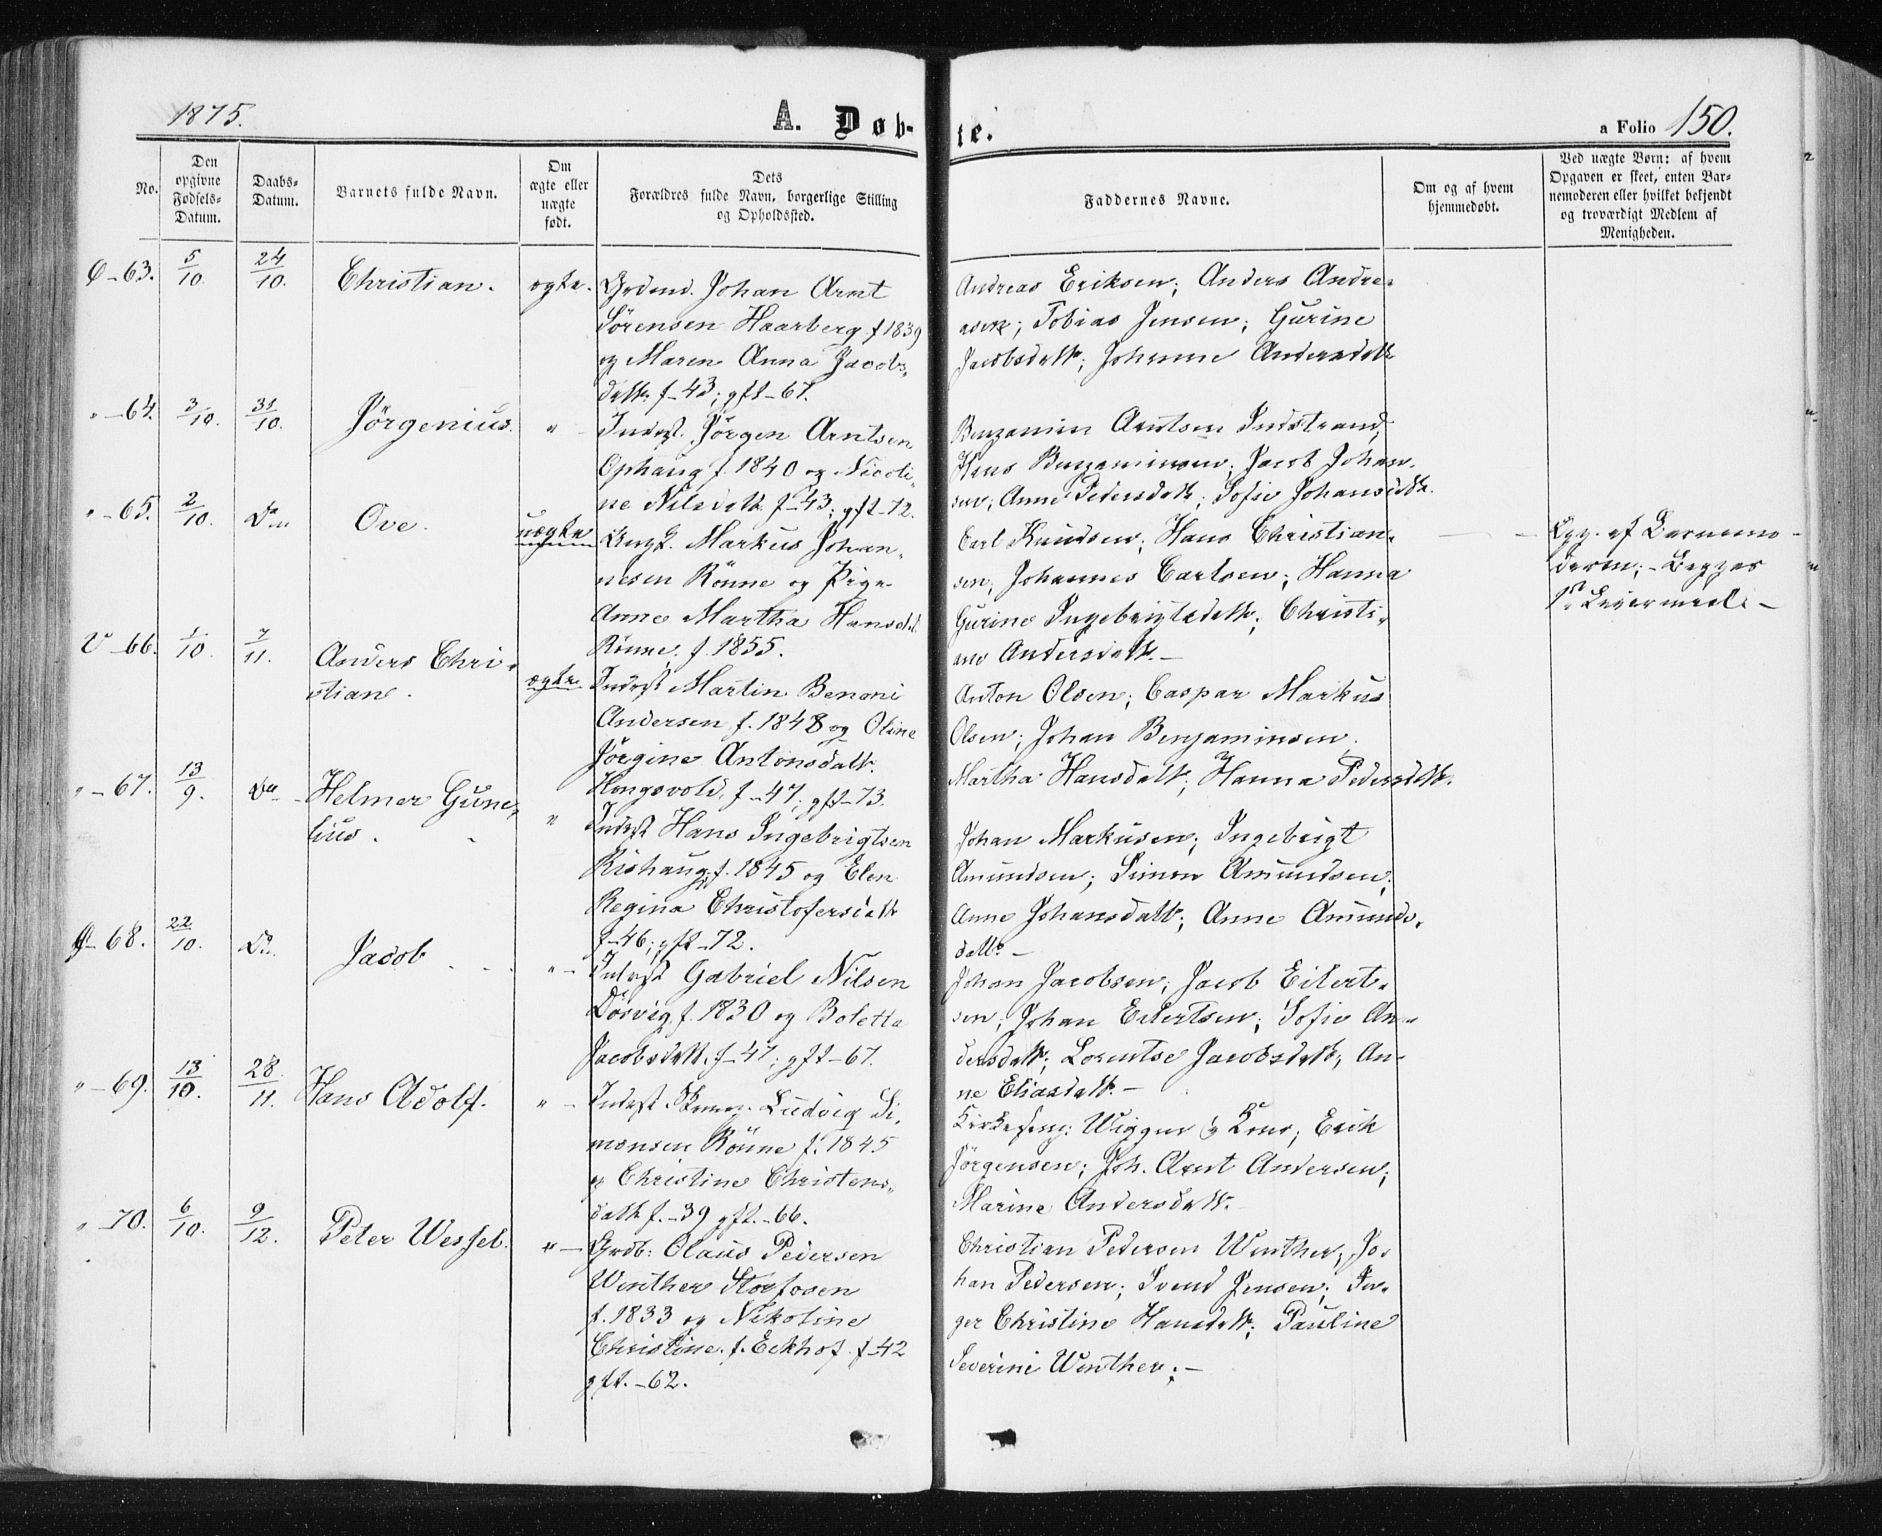 1875.
A. Døb-
te.
a Folio 150.
No.
Den opgivne Fødsels-Datum.
Daabs-Datum.
Barnets fulde Navn.
Om ægte eller uægte født.
Dets
Forældres fulde Navn, borgerlige Stilling
og Opholdssted.
Faddernes Navne.
Om og af hvem
hjemmedøbt.
Ved uægte Børn: af hvem
Opgaven er skeet, enten Bar-
nemoderen eller hvilket bekjendt
og troværdigt Medlem af
Menigheden.
63. 5/10. 24/10. Christian. ægte.
Grdmd. Johan Arnt
Sörensen Haarberg f 1839
og Maren Anna Jacobs-
datt. f-43; gft-67.
Andreas Eriksen; Anders Andre-
asen; Tobias Jensen; Gurine
Jacobsdatt; Johanne Andersdatt
" -64. 3/10. 31/10. Jörgenius. "
Inderst. Jörgen Arntsen
Ophaug f. 1840 og Nicoli-
ne Nilsdatt. f-43; gft-72.
Benjamin Arntsen Indstrand;
Benjaminsen; Jacob Johan-
sen; Anne Pedersdatt; Sofie Johansdatt.
" -65. 2/10. Do. Ove. uægte
Ungk. Markus Johan-
nesen Rönne og Pige
Anne Martha Hansd.
Rönne. f. 1855.
Carl Knudsen; Hans Christian-
sen; Johannes Carlsen; Hanna
Gurine Ingebrigtsdatt; Christi-
ane Andersdatt.-
Opg. af Barnemo-
deren;- Begges
1ste Leiermaal-
V -66. 1/10 7/11. Anders Chri-
stian. ægte
Inderst Martin Benoni
Andersen f. 1848 og Oline
Jörgine Antonsdatt.
Hengsvold. f-47; gft-73.
Anton Olsen; Caspar Markus
Olsen; Johan Benjaminsen.
Martha Hansdatt; Hanna Pedersdatt.
" -67. 13/9. Do. Helmer Gune-
lius. "
Inderst Hans Ingebrigtsen
Rishaug f. 1845 og Elen
Regina Christofersdatt
f-46; gft-72.
Johan Markusen; Ingebrigt
Amundsen; Simon Amundsen;
Anne Johansdatt; Anne Amunds-
datt. -
68. 22/10. Do. Jacob "-
Inderst Gabriel Nilsen
Dösvig f. 1830 og Boletta
Jacobsdatt. f-47; gft-67.
Johan Jacobsen; Jacob Eilert-
sen; Johan Eilertsen; Sofie An-
dersdatt; Lorentse Jacobsdatt; An-
ne Eliasdatt. -
" -69. 13/10. 28/11. Hans Adolf. "-
Inderst Ludvig Si-
monsen Rönne f. 1845
og Christine Christens-
datt f.-39 gft.-66.
Kirkesang: Wigger Erik
Jörgensen; Joh. Arnt Andersen;
Marine Andersdatt.
" 70. 6/10. 9/12. Peter Wessel. "-
Grdb: Olaus Pedersen
Winther Storfosen
f. 1833 og Nikoline
Christine f. Eckhof f-42
gft.-62.
Christian Pedersen Winther; Jo-
han Pedersen; Svend Jensen; In-
ger Christine Hansdatt; Pauline
Severine Winther; -